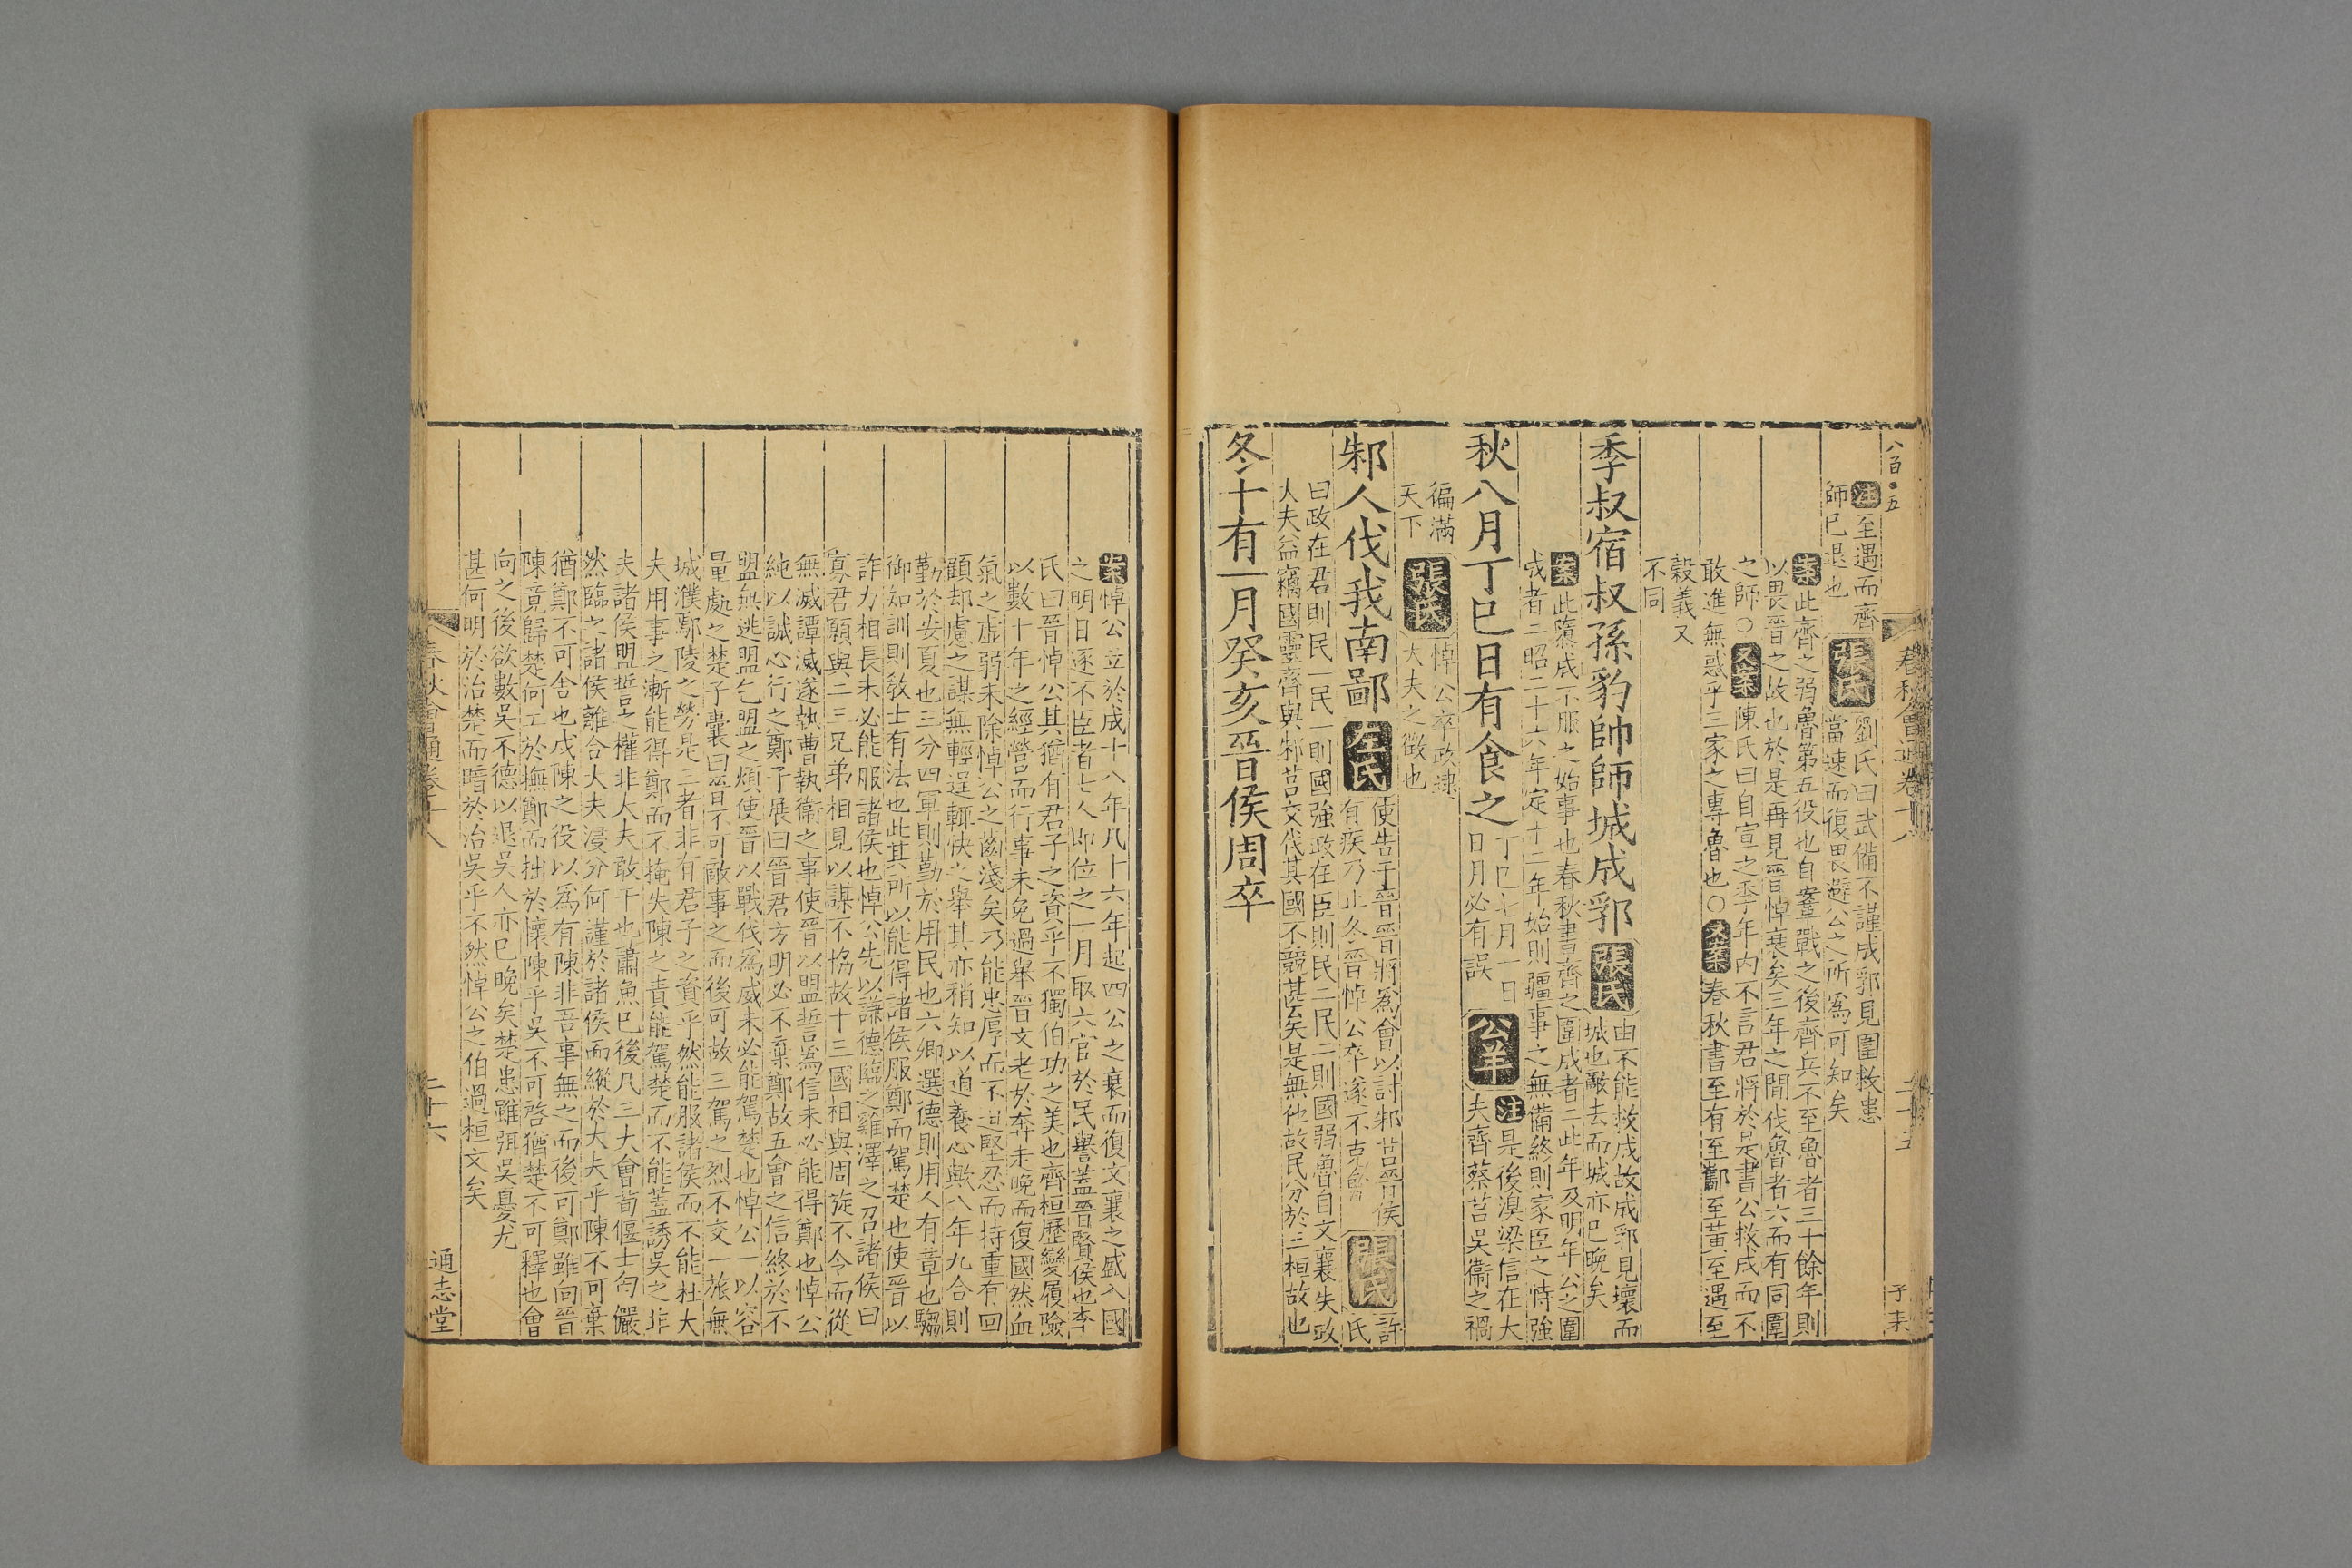 八百五
春秋會通卷十八
二十五
子末
注至遇而齊
師已退也
張氏
劉氏曰武備不謹成郛見圍救患
當速而復畏避公之所爲可知矣
案此齊之弱魯第五役也自鞌戰之後齊兵不至魯者三十餘年則
以畏晉之故也於是再見晉悼衰矣三年之間伐魯者六而有同圍
之師○又案陳氏曰自宣之季年內不言君將於是書公救成而不
敢進無惑乎三家之專魯也○又案春秋書至有至酅至黃至遇至
穀義又
不同
季叔宿叔孫豹帥師城成郛
張氏
由不能救成故成郛見壞而
城也敵去而城亦已晚矣
案此墮成不服之始事也春秋書齊之圍成者二此年及明年公之圍
成者二昭二十六年定十二年始則疆事之無備終則家臣之恃強
秋八月丁巳日有食之
丁巳七月一日
日月必有誤
公羊
注是後溴梁信在大
夫齊蔡莒吳衞之禍
徧滿
天下
張氏
悼公卒政逮
大夫之徵也
邾人伐我南鄙
左氏
使告于晉晉將爲會以討邾莒晉侯
有疾乃止冬晉悼公卒遂不克會
張氏
許氏
曰政在君則民一民一則國強政在臣則民二民二則國弱魯自文襄失政
大夫益竊國靈齊與邾莒交伐其國不競甚矣是無他故民分於三桓故也
冬十有一月癸亥晉侯周卒
案悼公立於成十八年凡十六年起四公之衰而復文襄之盛入國
之明日逐不臣者七人即位之一月取六官於民譽蓋晉賢侯也李
氏曰晉悼公其猶有君子之資乎不獨伯功之美也齊桓歷變履險
以數十年之經營而行事未免過舉晉文老於奔走晚而復國然血
氣之虛弱未除悼公之齒淺矣乃能忠厚而不迫堅忍而持重有回
顧却慮之謀無輕逞輒快之舉其亦稍知以道養心歟八年九合則
勤於安夏也三分四軍則勤於用民也六卿選德則用人有章也騶
御知訓則敎士有法也此其所以能得諸侯服鄭而駕楚也使晉以
詐力相長未必能服諸侯也悼公先以謙德臨之雞澤之召諸侯曰
寡君願與二三兄弟相見以謀不恊故十三國相與周旋不令而從
無滅譚滅遂執曹執衞之事使晉以盟誓爲信未必能得鄭也悼公
純以誠心行之鄭子展曰晉君方明必不棄鄭故五會之信終於不
盟無逃盟乞盟之煩使晉以戰伐爲威未必能駕楚也悼公一以容
量處之楚子囊曰晉不可敵事之而後可故三駕之烈不交一旅無
城濮鄢陵之勞是三者非有君子之資乎然能服諸侯而不能杜大
夫用事之漸能得鄭而不掩失陳之責能駕楚而不能蓋誘吳之非
夫諸侯盟誓之權非大夫敢干也蕭魚已後凡三大會荀偃士匄儼
然臨之諸侯離合大夫浸分何謹於諸侯而縱於大夫乎陳不可棄
猶鄭不可舍也戍陳之役以爲有陳非吾事無之而後可鄭雖向晉
陳竟歸楚何工於撫鄭而拙於懷陳乎吳不可啓猶楚不可釋也會
向之後欲數吳不德以退吳人亦已晚矣楚患雖弭吳憂尤
甚何明於治楚而暗於治吳乎不然悼公之伯過桓文矣
春秋會通卷十八
二十六
通志堂